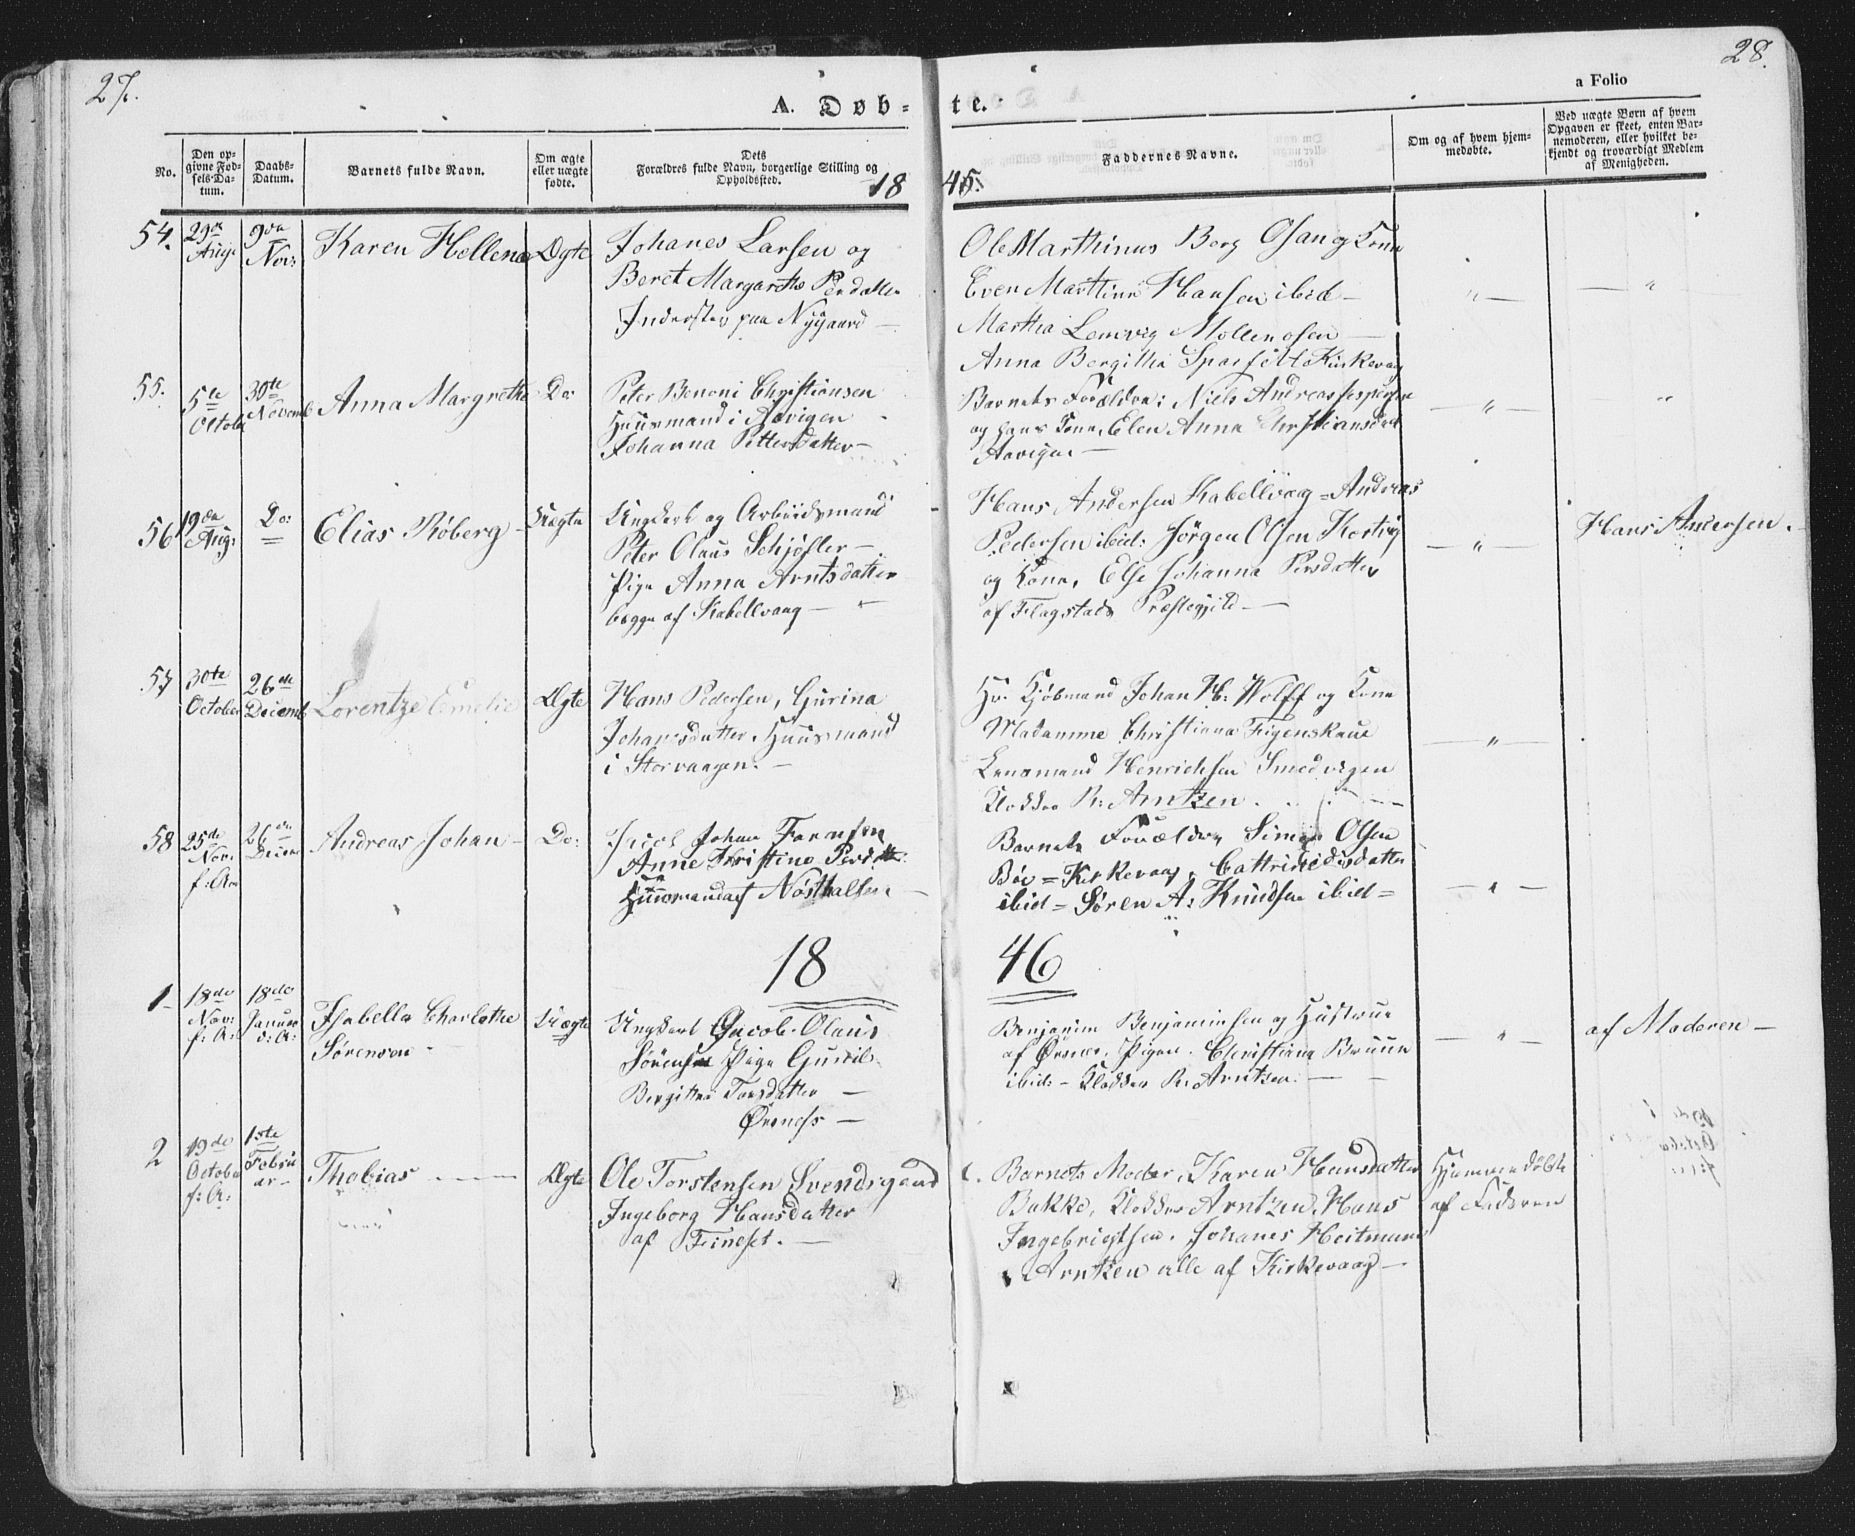 27.
28.
a Folio
A. Døb-
te.
No.
Den op-
givne Fød-
sels-Da-
tum.
Daabs-
Datum.
Barnets fulde Navn.
Om ægte
eller uægte
fødte.
Dets
Forældres fulde Navn, borgerlige Stilling og
Opholdssted.
18
45.
Faddernes Navne.
Om og af hvem hjem-
medøbte.
Ved uægte Børn af hvem
Opgaven er skeet, enten Bar-
nemoderen, eller hvilket be-
kjendt og troværdigt Medlem
af Menigheden.
54.
Aug:
Nov:
Karen Hellena
Ægte
Johanes Larsen og
Beret Margarethe
Inderster paa Nygaard —
Ole Marthinus Berg
Hansen ibid —
Martha Lemvig Mollenosen —
Anna Bergitha
55.
5te
Octobr
30te
Novemb
Anna Margrethe
Do:
Peter Benoni Christiansen
Huusmand i
Johanna Pettersdatter —
Barnets Forældre: Niels Andreas Jespersen
og hans Kone, Elen Anna Christiansdat
56
19de
Aug:
Do:
Elias Røberg —
Uægte
Ungkarl og Arbeidsmand
Peter Olaus Schjøsler —
Pige Anna Arntsdatter
begge af Kabellvaag —
Hans Andersen Kabellvaag = Andreas
Pedersen ibid: Jørgen Olsen
og Kone, Else Johanna Persdatter
af Flagstads Præstegjeld —
Hans Andersen. —
57
30te
October
26de
Decemb
Lorentze Emelie
Ægte
Hans Pedersen, Gurina
Johansdatter. Huusmand
i Storvaagen. —
Hr. Kjøbmand Johan H: Wolff og Kone
Madamme Christiana Figenskaue
Lensmand Henrichsen Smedvigen
Klokker R: Arntzen.
58
25de
Nov:
f: Aar
26de
Decem
Andreas Johan —
Do:
Jacob Johan
Anne Kristine Persdatter
Huusmand af
Barnets Forældre Simon Olsen
Kirkevaag,
ibid = Søren A: Knudsen ibid =
18
46
1
18de
Nov:
f: A:
18de
Januar
d: A:
Isabella Charlotha
Sørensen —
Uægte
Ungkarl Jacob Olaus
Sørensen Pige
Bergitha Torsdatter —
Ørsnes —
Benjamin Benjaminsen og Hustrue
af Ørsnes. Pigen. Christiana Bruun
ibid: — Klokker R: Arntzen. —
af Moderen —
2
19de
October
f: A:
1ste
Febru
ar —
Thobias —
Ægte
Ole Torstensen
Ingeborg Hansdatter
af
Barnets Moder, Karen Hansdatter
Bakke, Klokker Arntzen, Hans
Ingebrigtsen. Johanes Heitmann
Arntzen alle af Kirkevaag —
Hjemmedøbte
af Faderen